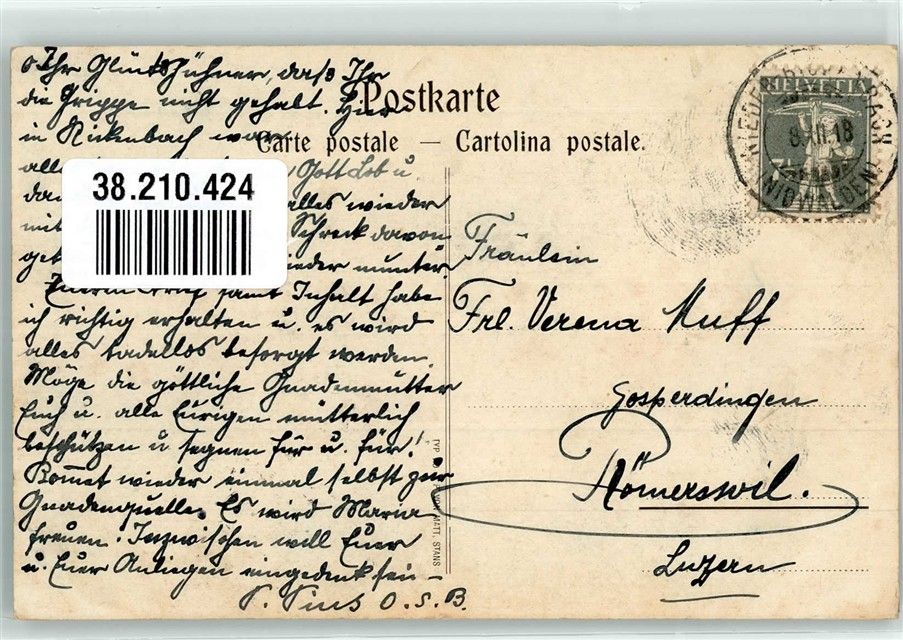 O Ihr Glückshühner, daß Ihr
die Grippe nicht gehabt. Hier
in Rickenbach war
alle Gott Lob u.
alles wieder
mit Schreck davon
wieder munter.
Euern Brief samt Inhalt habe
ich richtig erhalten u. es wird
alles tadellos besorgt werden.
Möge die göttliche Gnadenmutter
Euch u. alle Eurigen mütterlich
beschützen u segnen für u. für!
Kommet wieder einmal selbst zur
Gnadenquelle. Es wird Maria
freuen. Inzwischen will Euer
u. Euer Anliegen eingedenk sein –
P. Pius O.S.B.
38.210.424
Postkarte
Carte postale — Cartolina postale.
HELVETIA
8.XII.18
(NIDWALDEN)
Fräulein
Frl. Verena Muff
Gosperdingen
Römerswil.
Luzern
MATT, STANS